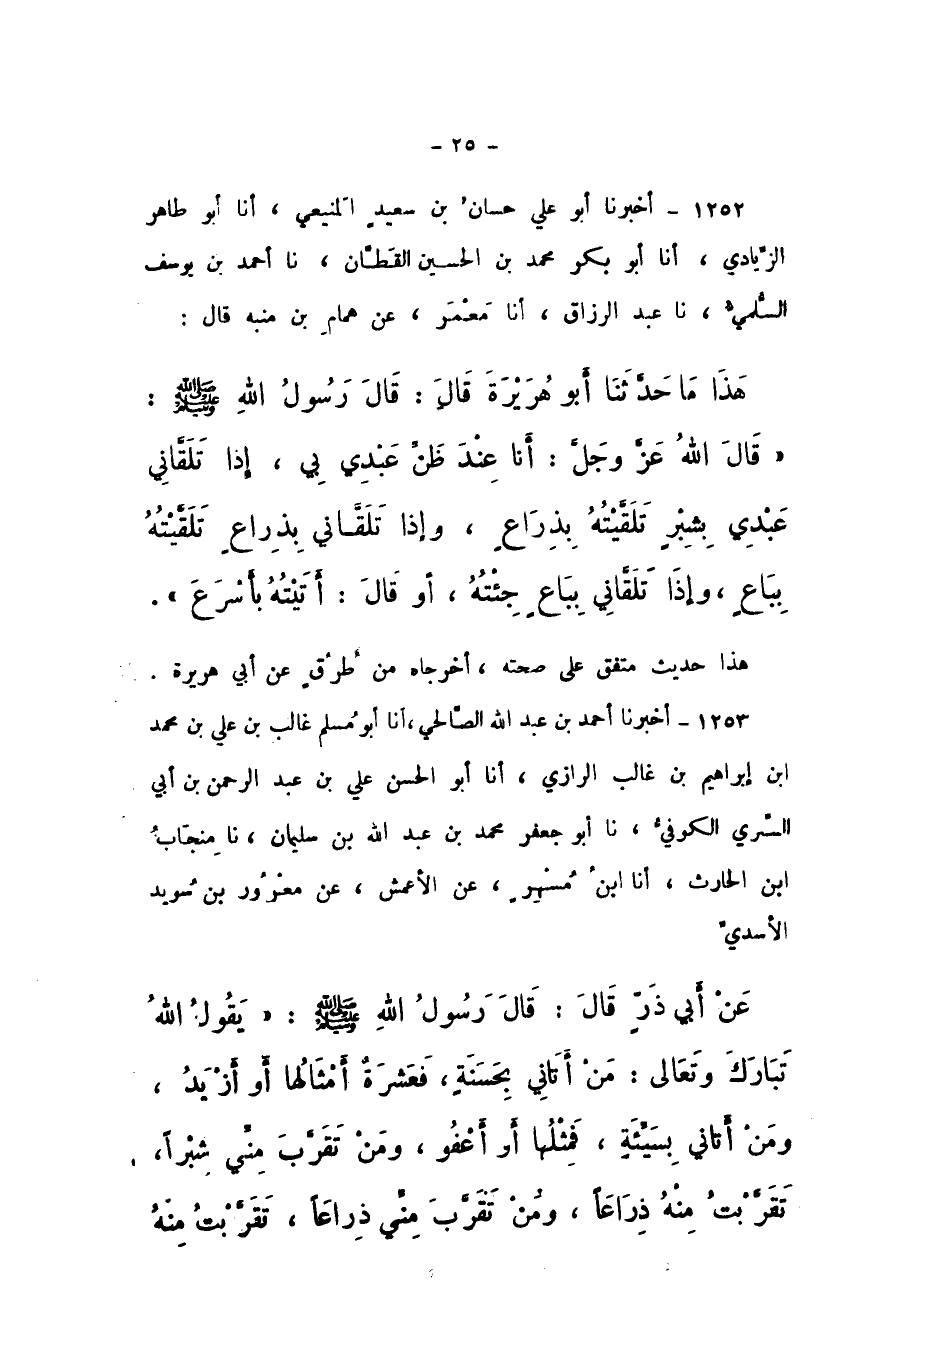 - ٢٥ -
١٢٥٢ - أخبرنا أبو علي حسانُ بن سعيدٍ المَنيعي ، أنا أبو طاهر
الزِّيادي ، أنا أبو بكر محمد بن الحسين القَطَّان ، نا أحمد بن يوسف
السُّلميُّ ، نا عبد الرزاق ، أنا مَعْمَر ، عن همامِ بن منبه قال :
هَذَا مَا حَدَّثَنَا أَبو هُرَيْرَةَ قَالَ : قَالَ رَسُولُ اللهِ ﷺ :
« قَالَ اللهُ عَزَّ وجَلَّ : أَنا عِنْدَ ظَنِّ عَبْدِي بِي ، إِذا تَلَقَّاني
عَبْدِي بِشِبْرٍ تَلَقَّيْتُهُ بِذِرَاعٍ ، وإذا تَلَقَّاني بِذِراعٍ تَلَقَّيْتُهُ
بِبَاعٍ ، وإِذَا تَلَقَّاني بِبَاعٍ جِئْتُهُ ، أو قَالَ : أَتَيْتُهُ بأَسْرَعَ » .
هذا حديث متفق على صحته ، أخرجاه من طُرُقٍ عن أبي هريرة .
١٢٥٣ - أخبرنا أحمد بن عبد الله الصَّالحي ، أنا أبو مُسلم غالب بن علي بن محمد
ابن إبراهيم بن غالب الرازي ، أنا أبو الحسن علي بن عبد الرحمن بن أبي
السَّري الكوفيُّ ، نا أبو جعفر محمد بن عبد الله بن سليمان ، نا مِنجَابُ
ابن الحارث ، أنا ابنُ مُسْهِرٍ ، عن الأعمش ، عن معرُور بن سُويد
الأسديِّ
عَنْ أَبي ذَرٍّ قَالَ : قَالَ رَسُولُ اللهِ ﷺ : « يَقُولُ اللهُ
تَبَارَكَ وتَعَالى : مَنْ أَتَاني بِحَسَنَةٍ ، فَعَشرَةُ أَمْثَالُها أَو أَزْيَدُ ،
ومَنْ أَتاني بِسَيِّئَةٍ ، فَمِثْلُها أَو أَعْفُو ، ومَنْ تَقَرَّبَ مِنِّي شِبْراً ،
تَقَرَّبْتُ مِنْهُ ذِرَاعَاً ، ومُنْ تَقَرَّبَ مِنِّي ذِراعَاً ، تَقَرَّبْتُ مِنْهُ